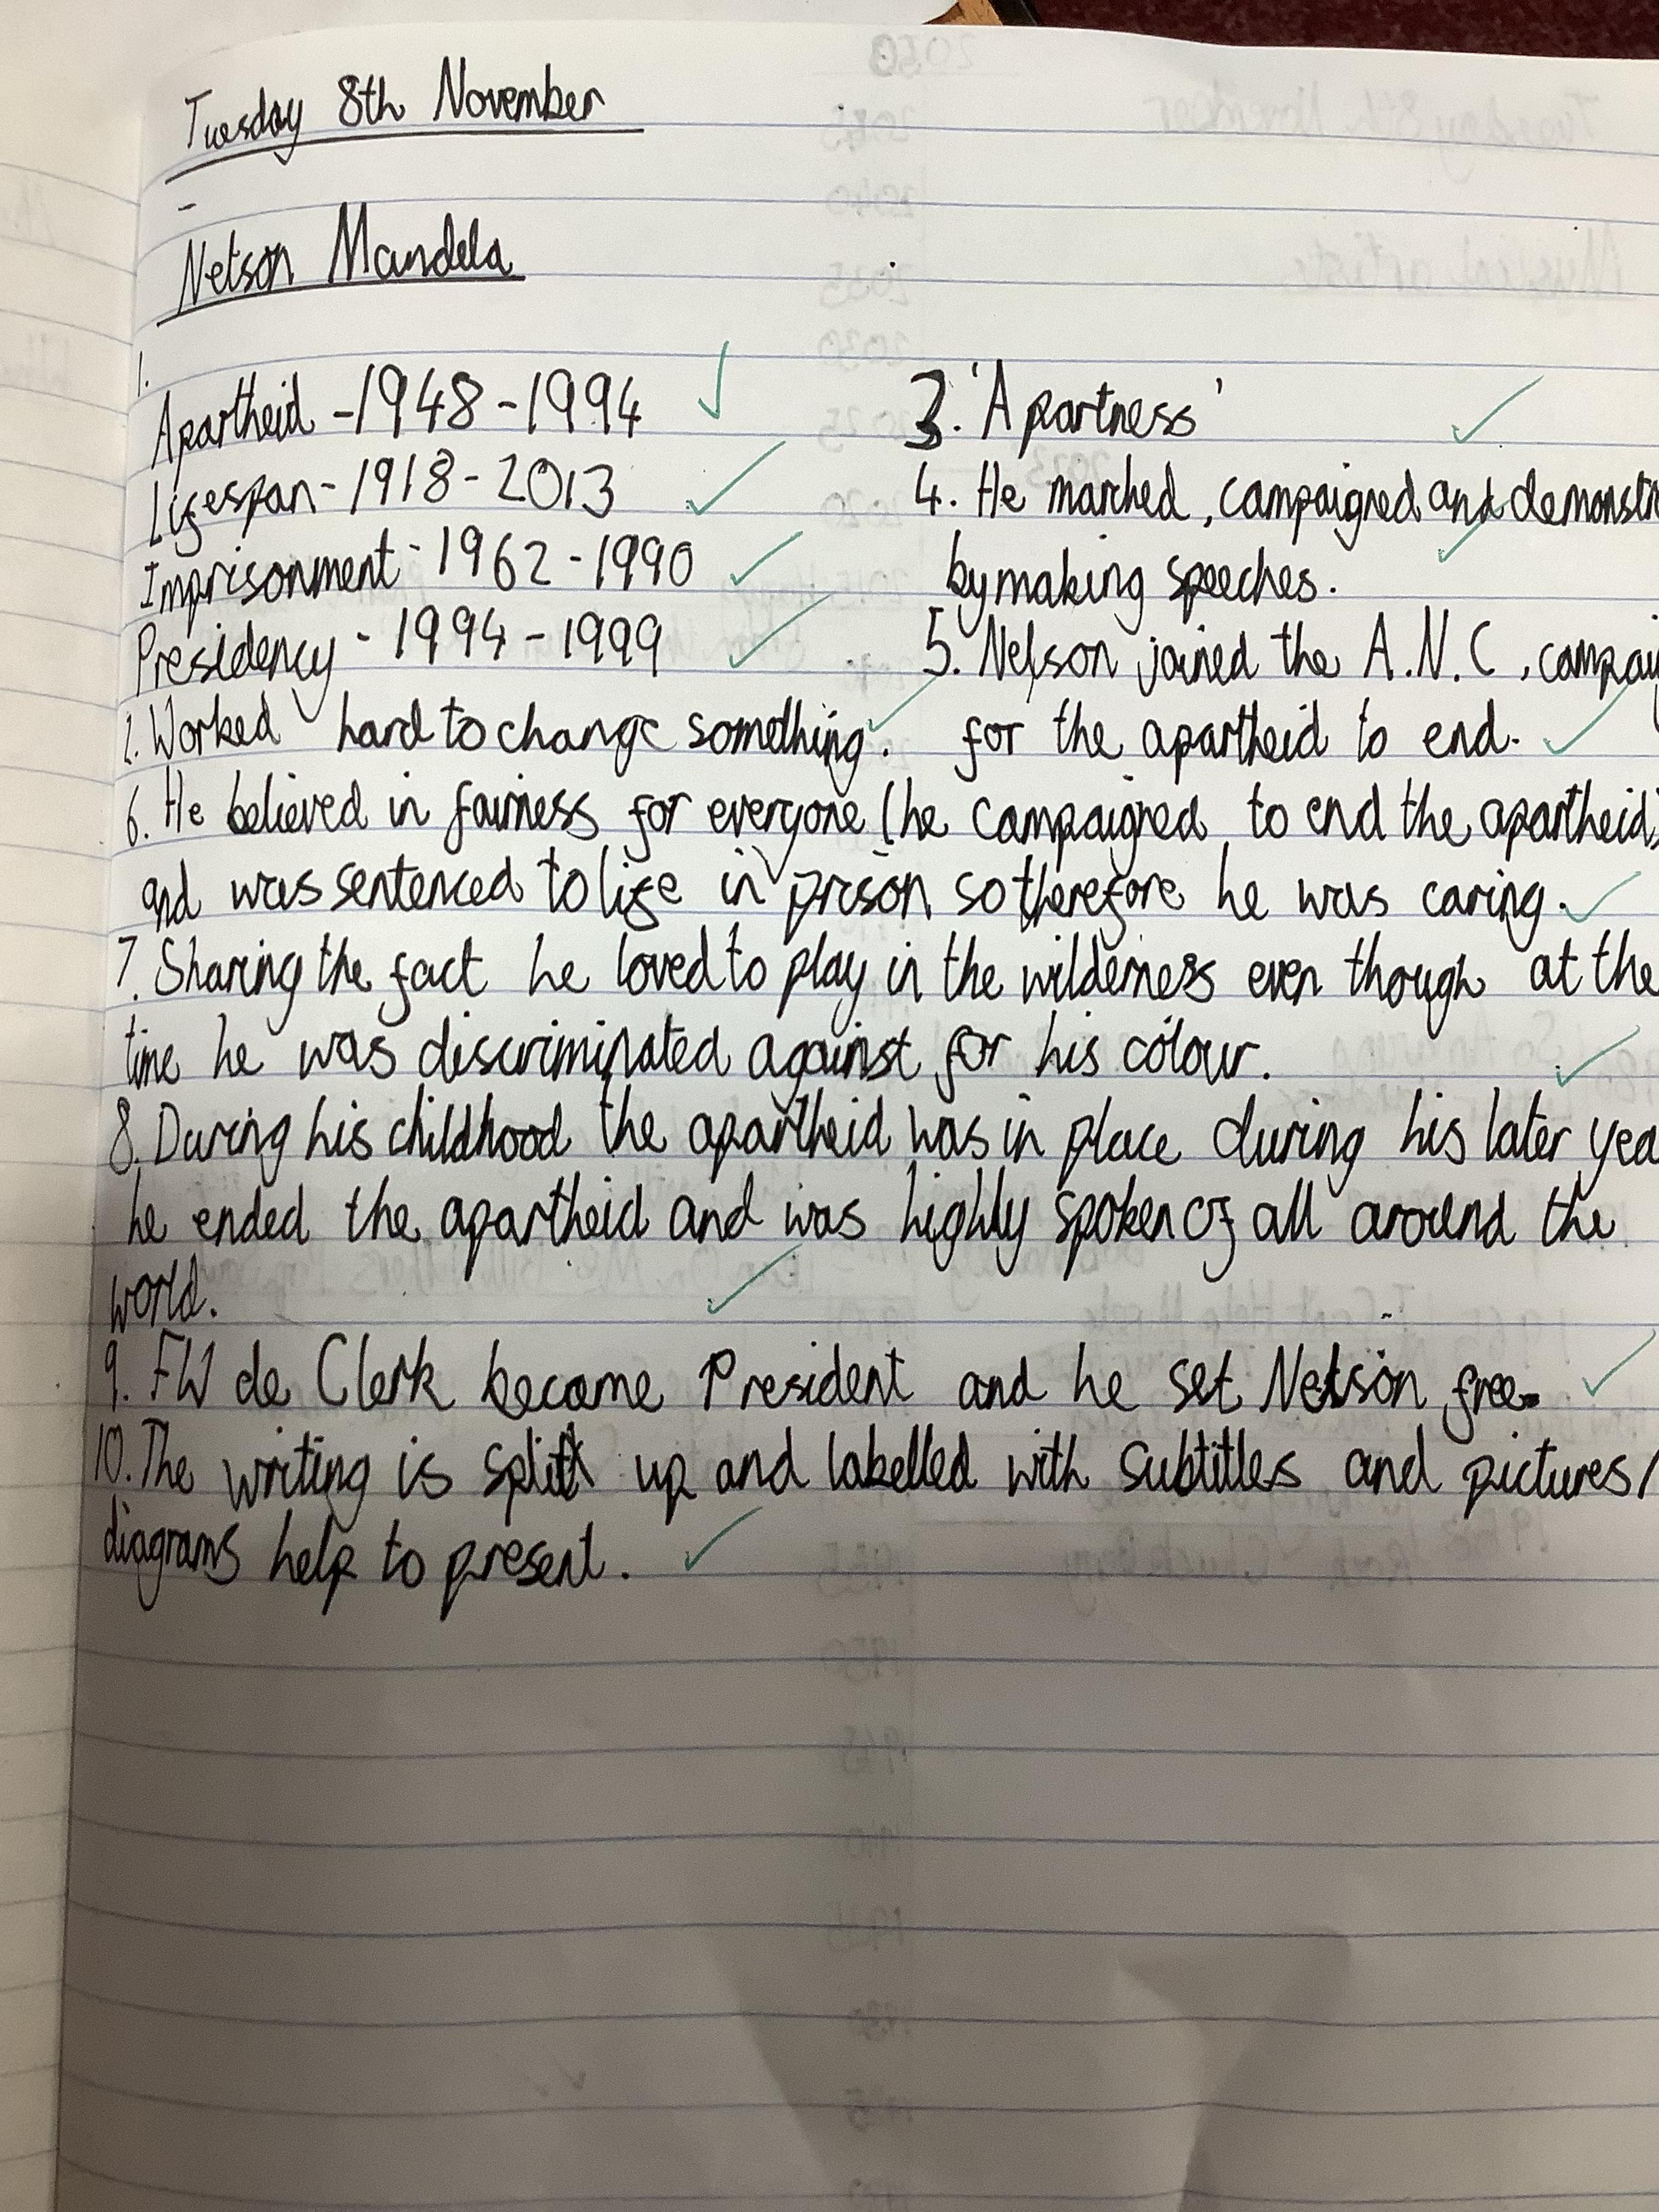 Tuesday 8th November
Nelson Mandela
1.
Apartheid - 1948 - 1994
Lifespan - 1918 - 2013
Imprisonment - 1962 - 1990
Presidency - 1994 - 1999
2. Worked hard to change something.
3. 'Apartness'
4. He marched, campaigned and demonstr
by making speeches.
5. Nelson joined the A.N.C, campaig
for the apartheid to end.
6. He believed in fairness for everyone (he campaigned to end the apartheid)
and was sentenced to life in prison so therefore he was caring.
7. Sharing the fact he loved to play in the wilderness even though at the
time he was discriminated against for his colour.
8. During his childhood the apartheid was in place during his later yea
he ended the apartheid and was highly spoken of all around the
world.
9. FW de Clerk become President and he set Nelson free.
10. The writing is split up and labelled with subtitles and pictures/
diagrams help to present.